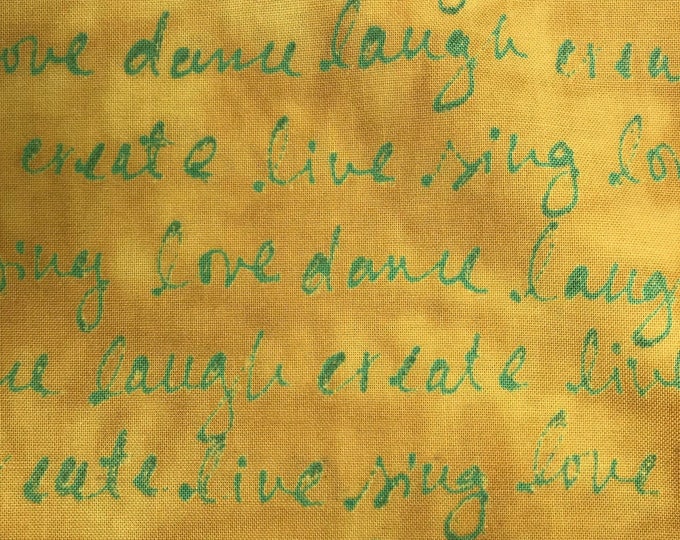 love dance laugh crea
create live sing lov
sing love dance laug
ce laugh create live
reate live sing love